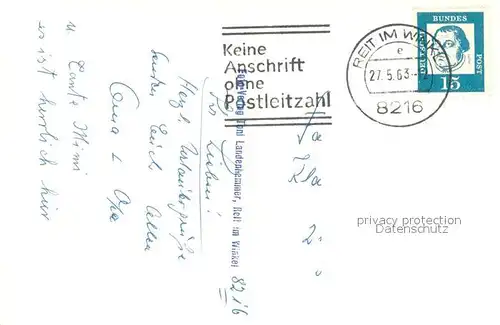 Keine
Anschrift
ohne
Postleitzahl
REIT IM WINKL
e
27.5.63
8216
BUNDES
POST
15
Foto-Verlag Toni Landenhammer, Reit im Winkl
8216
Ihr Lieben!
Herzl. Urlaubsgrüße
senden Euch allen
Oma & Opa
u. Tante Mimi
es ist herrlich hier
privacy protection
Datenschutz